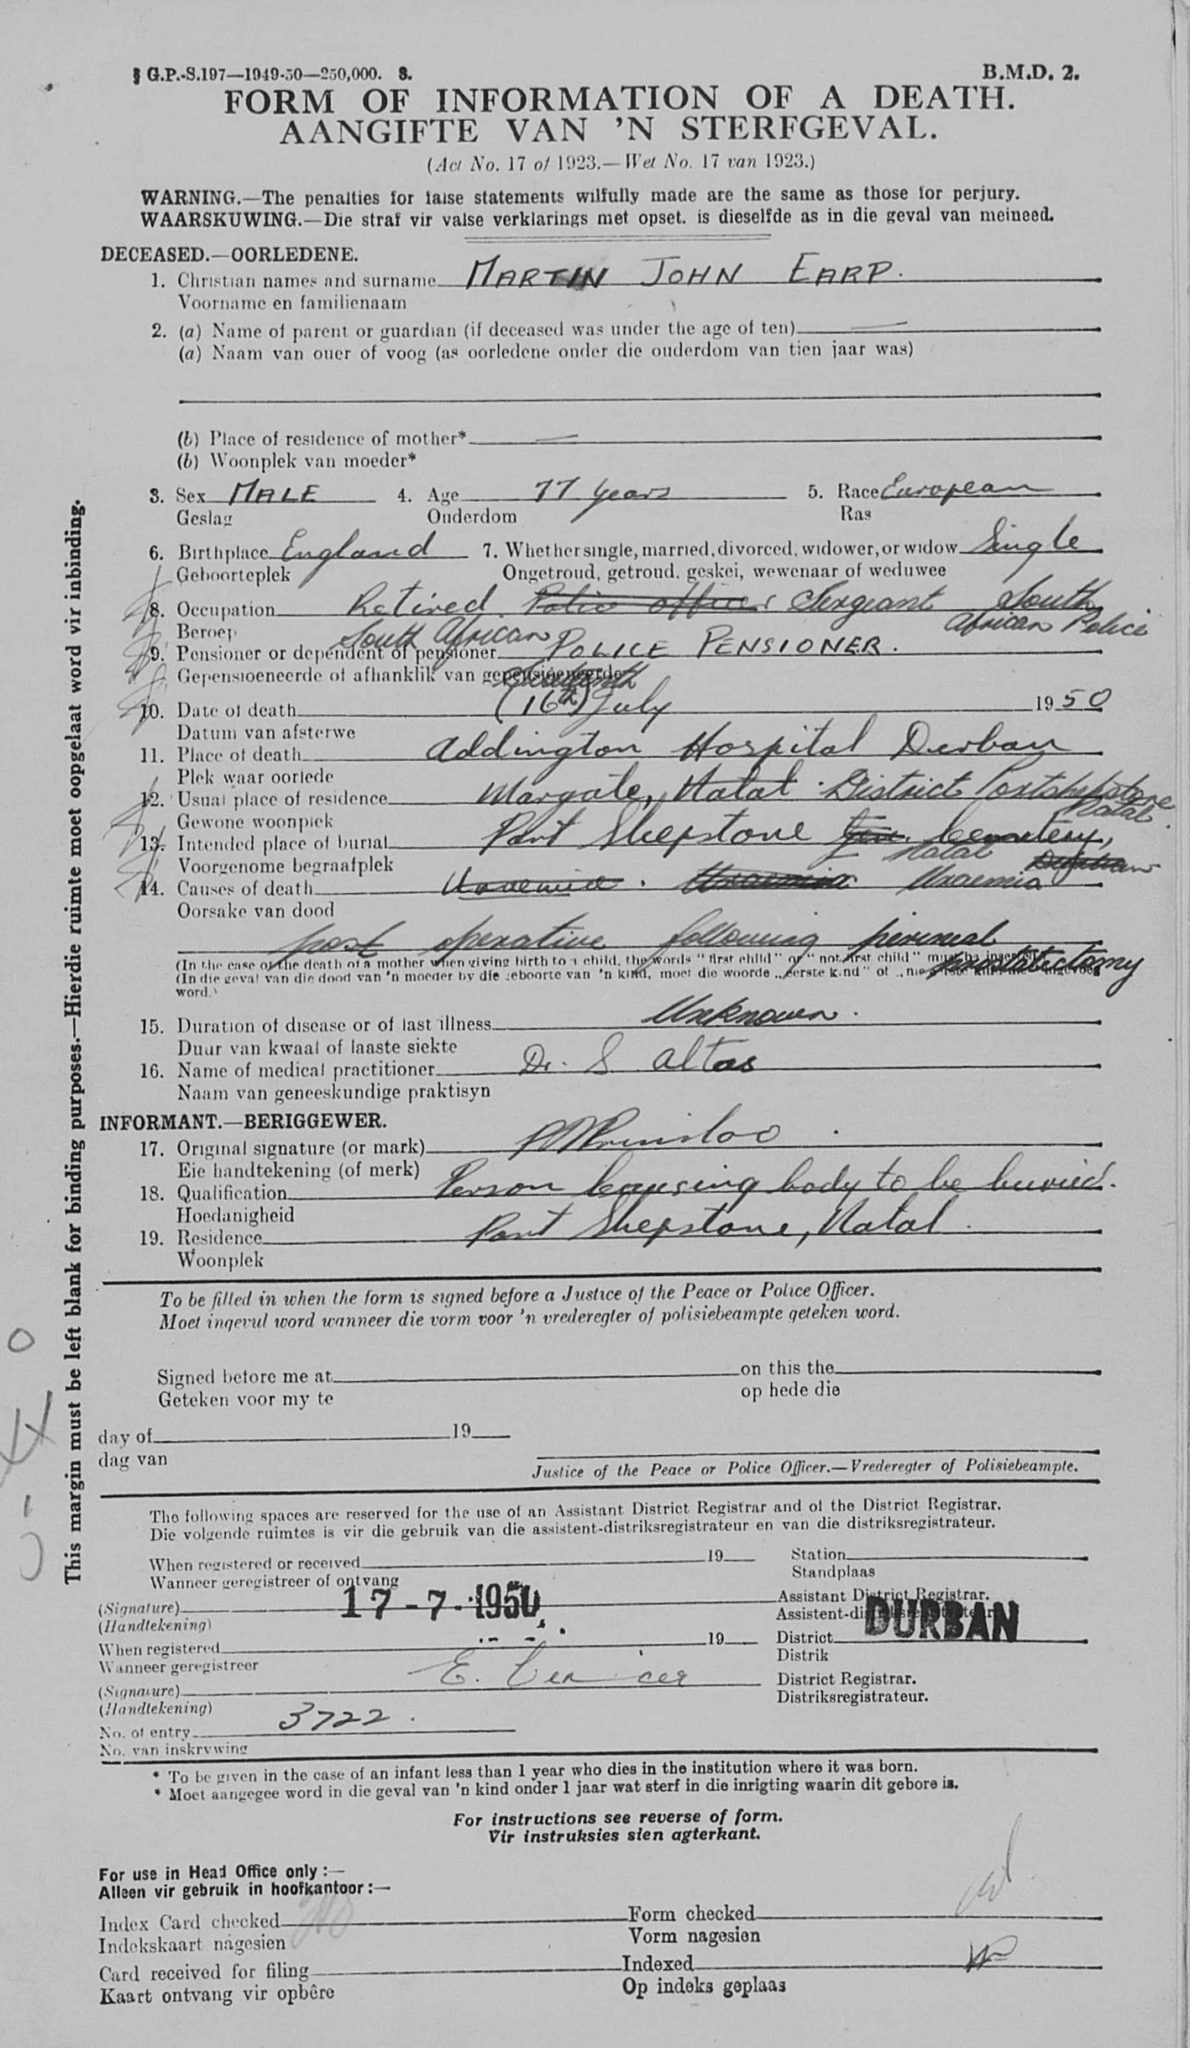 § G.P.-S.197—1949-50—250,000. S.
B.M.D. 2.
FORM OF INFORMATION OF A DEATH.
AANGIFTE VAN 'N STERFGEVAL.
(Act No. 17 of 1923.—Wet No. 17 van 1923.)
WARNING.—The penalties for false statements wilfully made are the same as those for perjury.
WAARSKUWING.—Die straf vir valse verklarings met opset. is dieselfde as in die geval van meineed.
DECEASED.—OORLEDENE.
1. Christian names and surname MARTIN JOHN EARP.
Voorname en familienaam
2. (a) Name of parent or guardian (if deceased was under the age of ten) —
(a) Naam van ouer of voog (as oorledene onder die ouderdom van tien jaar was)
(b) Place of residence of mother* —
(b) Woonplek van moeder*
3. Sex MALE 4. Age 77 years 5. Race European
Geslag Ouderdom Ras
6. Birthplace England 7. Whether single, married, divorced, widower, or widow Single
Geboorteplek Ongetroud, getroud, geskei, wewenaar of weduwee
8. Occupation Retired Police officer Sergeant South
Beroep African Police
South African
9. Pensioner or dependent of pensioner POLICE PENSIONER.
Gepensioeneerde of afhanklik van gepensioeneerde
Sixteenth
10. Date of death (16th) July 1950
Datum van afsterwe
11. Place of death Addington Hospital Durban
Plek waar oorlede
12. Usual place of residence Margate, Natal District Portshepstone
Gewone woonplek Natal
13. Intended place of burial Port Shepstone Cemetery,
Voorgenome begraafplek Natal
14. Causes of death Uraemia. Uraemia Uraemia
Oorsake van dood
post operative following perineal
prostatectomy
(In the case of the death of a mother when giving birth to a child, the words "first child" or "not first child" must be inserted
(In die geval van die dood van 'n moeder by die geboorte van 'n kind, moet die woorde „eerste kind" of „nie
word.)
15. Duration of disease or of last illness Unknown.
Duur van kwaal of laaste siekte
16. Name of medical practitioner Dr. S Altas
Naam van geneeskundige praktisyn
INFORMANT.—BERIGGEWER.
17. Original signature (or mark) Prinsloo
Eie handtekening (of merk)
18. Qualification Person causing body to be buried.
Hoedanigheid
19. Residence Port Shepstone, Natal.
Woonplek
To be filled in when the form is signed before a Justice of the Peace or Police Officer.
Moet ingevul word wanneer die vorm voor 'n vrederegter of polisiebeampte geteken word.
Signed before me at on this the
Geteken voor my te op hede die
day of 19
dag van
Justice of the Peace or Police Officer.—Vrederegter of Polisiebeampte.
The following spaces are reserved for the use of an Assistant District Registrar and of the District Registrar.
Die volgende ruimtes is vir die gebruik van die assistent-distriksregistrateur en van die distriksregistrateur.
When registered or received 19 Station
Wanneer geregistreer of ontvang Standplaas
17-7-1950
(Signature) Assistant District Registrar.
(Handtekening) Assistent-distriksregistrateur
When registered 19 District DURBAN
Wanneer geregistreer Distrik
(Signature) E. District Registrar.
(Handtekening) Distriksregistrateur.
No. of entry 3722.
No. van inskrywing
* To be given in the case of an infant less than 1 year who dies in the institution where it was born.
* Moet aangegee word in die geval van 'n kind onder 1 jaar wat sterf in die inrigting waarin dit gebore is.
For instructions see reverse of form.
Vir instruksies sien agterkant.
For use in Head Office only :—
Alleen vir gebruik in hoofkantoor :—
Index Card checked Form checked
Indekskaart nagesien Vorm nagesien
Card received for filing Indexed
Kaart ontvang vir opbêre Op indeks geplaas
This margin must be left blank for binding purposes.—Hierdie ruimte moet oopgelaat word vir inbinding.